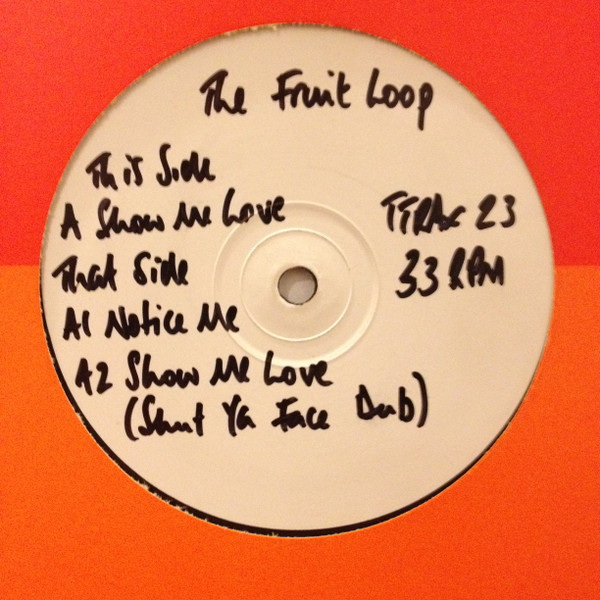 The Fruit Loop
This Side
A Show Me Love
TTRAX 23
That Side
33 RPM
A1 Notice Me
A2 Show Me Love
(Shut Ya Face Dub)